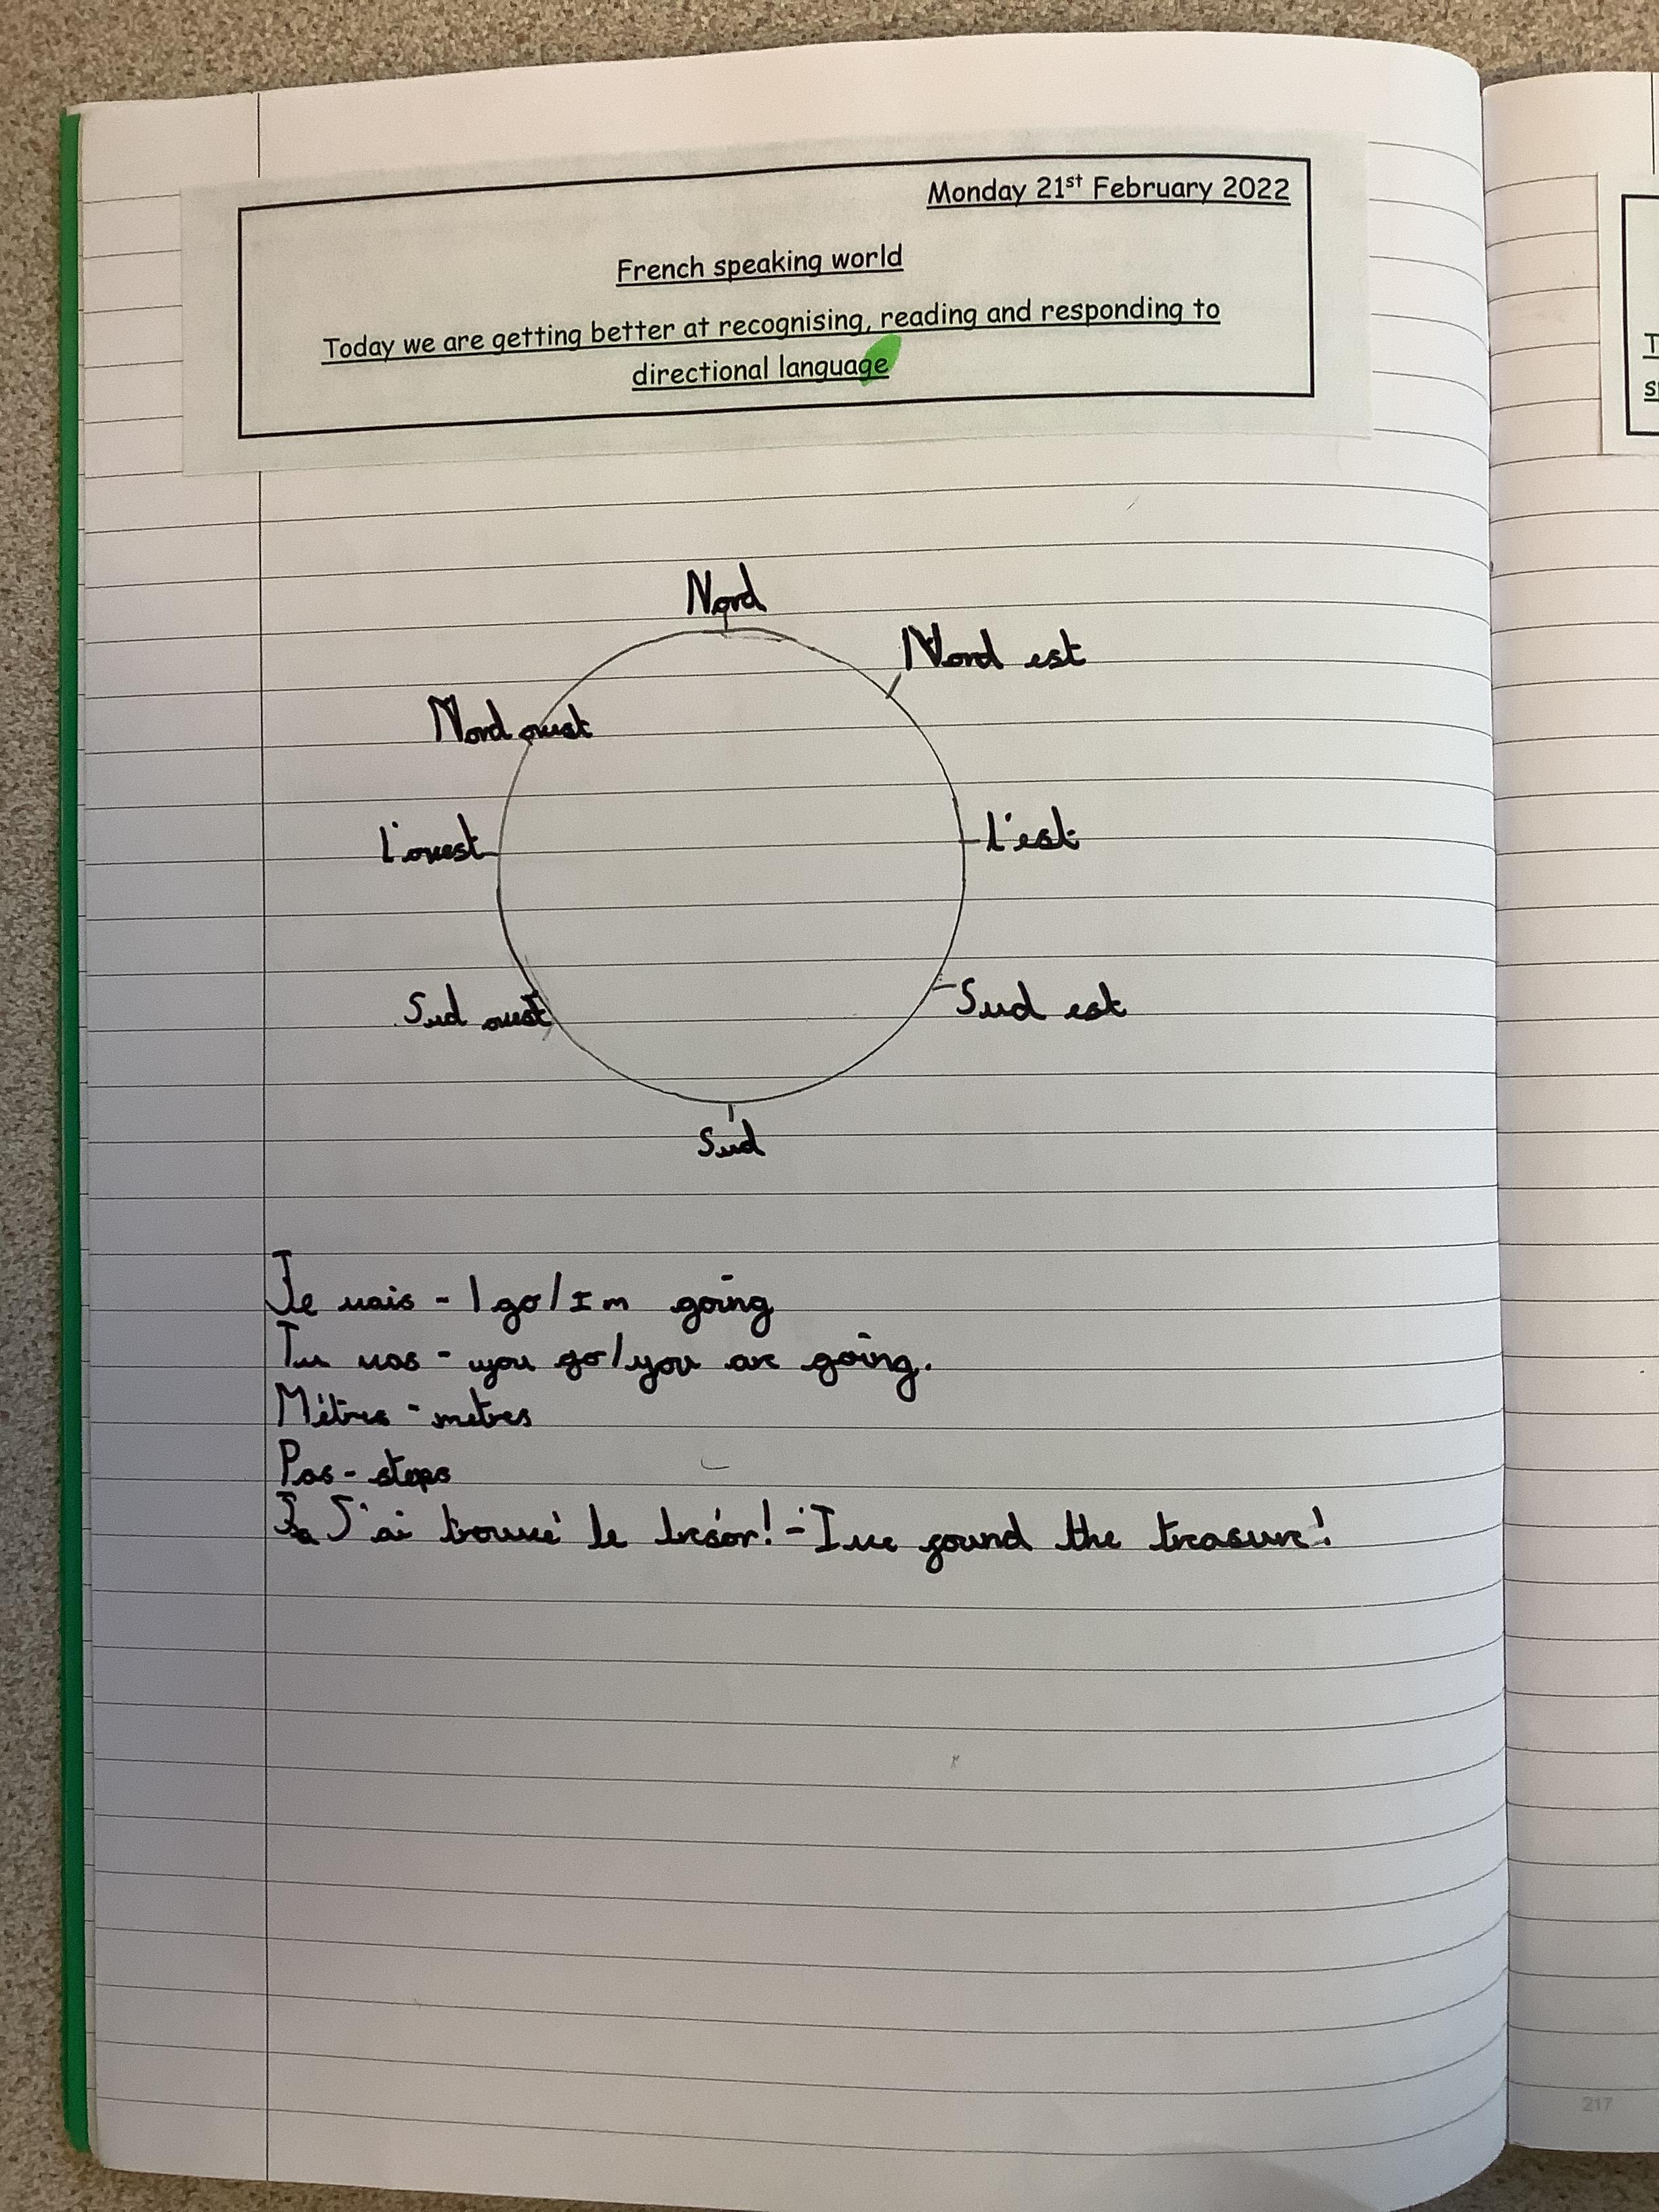 Monday 21st February 2022
French speaking world
Today we are getting better at recognising, reading and responding to
directional language
Nord
Nord est
Nord ouest
L'ouest
L'est
Sud ouest
Sud est
Sud
Je vais - I go/Im going
Tu vas - you go/you are going.
Métres - metres
Pas - steps
J'ai trouvé le trésor! - Ive found the treasure!
217